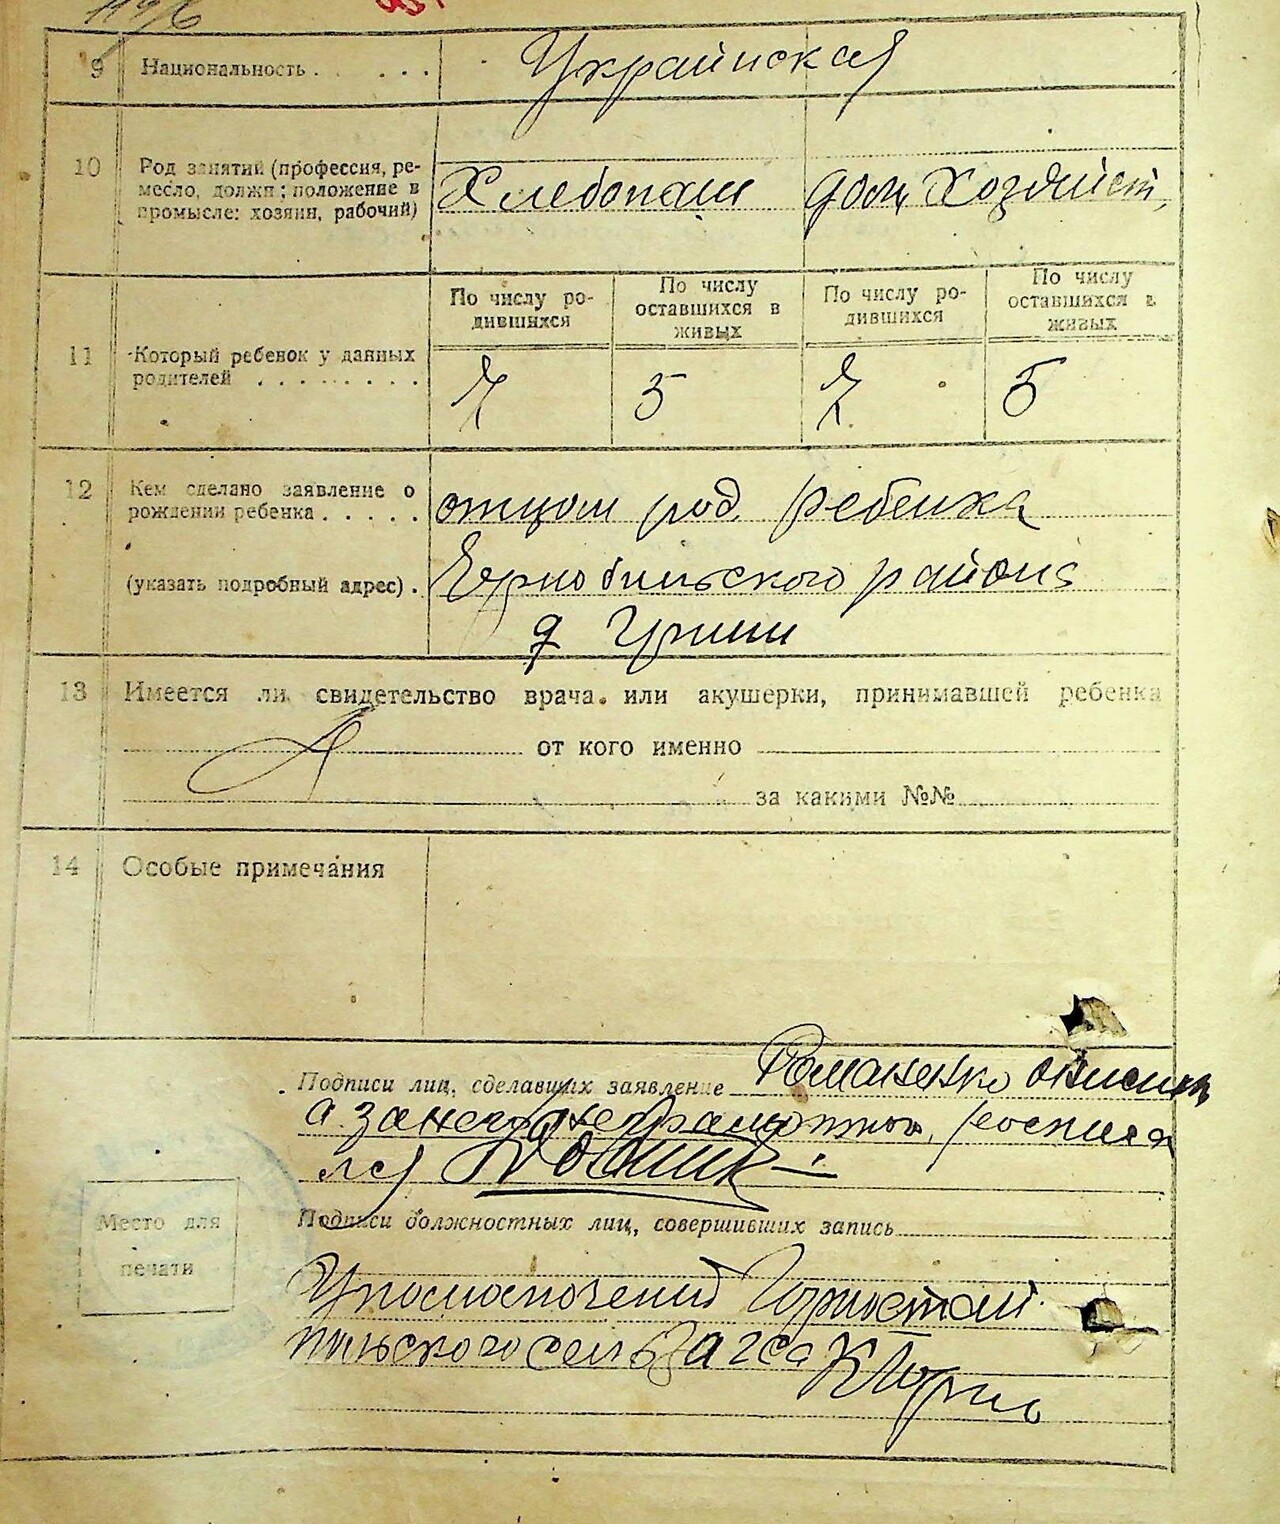 9 Национальность . . . . . Украинская
10 Род занятий (профессия, ре-
месло, должн; положение в
промысле: хозяин, рабочий)
Хлебопаш дом, Хозяйст,
11 Который ребенок у данных
родителей . . . . . . . .
По числу ро-
дившихся
По числу
оставшихся в
живых
По числу ро-
дившихся
По числу
оставшихся в
живых
7 5 7 5
12 Кем сделано заявление о
рождении ребенка . . . . .
отцом род. ребенка
(указать подробный адрес) .
Чернобильского района
д
13 Имеется ли свидетельство врача или акушерки, принимавшей ребенка
от кого именно
за какими №№
14 Особые примечания
Подписи лиц, сделавших заявление Романенко
а за него неграмотного росписа
лся
Место для
печати
Подписи должностных лиц, совершивших запись
Уполномочений Горностай
пильского сель Загса